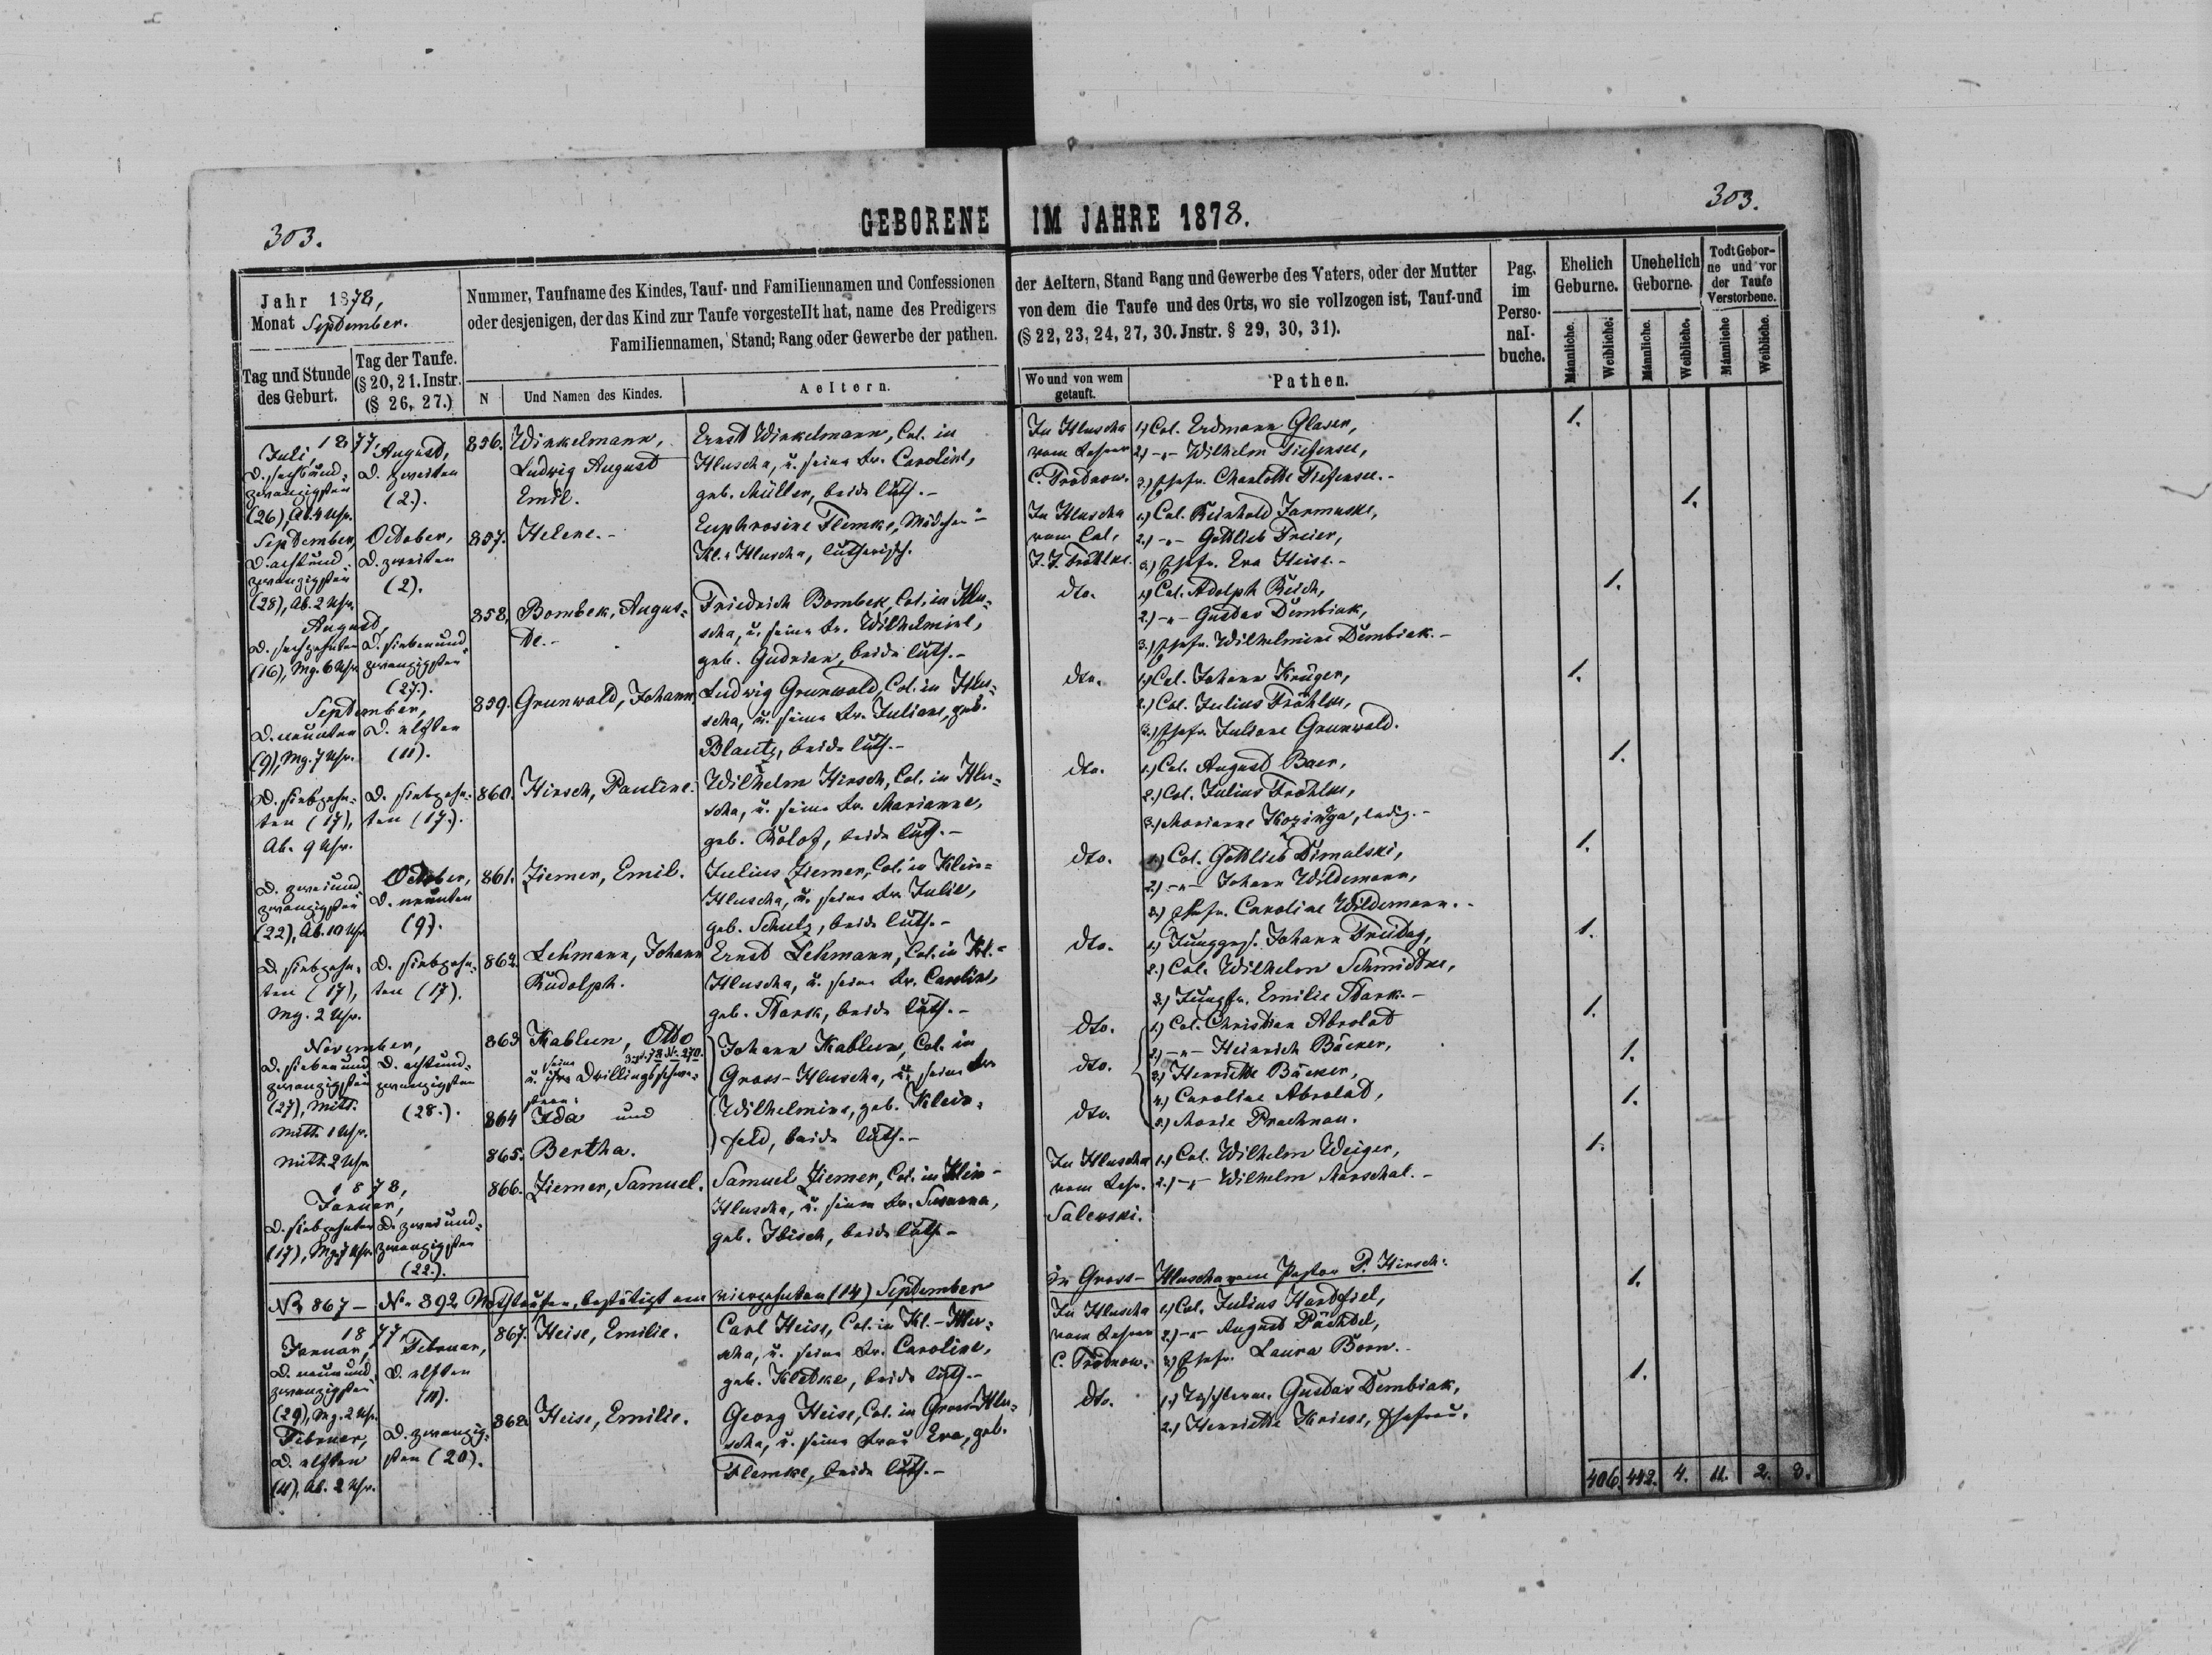 303.
GEBORENE IM JAHRE 1878.
303.
Jahr 1878,
Monat September.
Tag und Stunde
des Geburt.
Tag der Taufe.
(§ 20, 21. Instr.
(§ 26, 27.)
Nummer, Taufname des Kindes, Tauf- und Familiennamen und Confessionen
oder desjenigen, der das Kind zur Taufe vorgestellt hat, name des Predigers
Familiennamen, Stand; Rang oder Gewerbe der pathen.
N
Und Namen des Kindes.
Aeltern.
der Aeltern, Stand Rang und Gewerbe des Vaters, oder der Mutter
von dem die Taufe und des Orts, wo sie vollzogen ist, Tauf-und
(§ 22, 23, 24, 27, 30. Jnstr. § 29, 30, 31).
Wo und von wem
getauft.
Pathen.
Pag.
im
Perso-
nal-
buche.
Ehelich
Geburne.
Unehelich
Geborne.
Todt Gebor-
ne und vor
der Taufe
Verstorbene.
Männliche.
Weibliche.
Männliche.
Weibliche.
Männliche
Weibliche.
1877
Juli,
D. sechsund-
zwanzigsten
(26), Ab. 4 Uhr.
August,
D. zweiten
(2).
856.
Winkelmann,
Ludwig August
Emil.
Ernst Winkelmann, Col. in
Hluscha, u. seine Fr. Caroline,
geb. Müller, beide luth.-
In Hluscha
vom Lehrer
C. Trodnow.
1.) Col. Erdmann Glaser,
2.) -"- Wilhelm Tiefensee,
3.) Ehefr. Charlotte Tiefensee.-
1.
September,
D. achtund-
zwanzigsten
(28), Ab. 2 Uhr.
October,
D. zweiten
(2).
857.
Helene.-
Euphrosine Flemke, Mädchen in
Kl.-Hluscha, lutherisch.
In Hluscha
vom Col.
J. J. Fröhlke.
1.) Col. Reinhold Jarmuske,
2.) -"- Gottlieb Freier,
3.) Ehefr. Eva Heise.-
1.
August,
D. sechzehnten
(16), Mg. 6 Uhr
D. siebenund-
zwanzigsten
(27.).
858.
Bombek, Augus-
te.-
Friedrich Bombek, Col. in Hlu-
scha, u. seine Fr. Wilhelmine,
geb. Gudrian, beide luth.-
dto.
1.) Col. Adolph Reich,
2.) -"- Gustav Dembiak,
3.) Ehefr. Wilhelmine Dembiak.-
1.
September,
D. neunten
(9), Mg. 7 Uhr.
D. elften
(11).
859.
Grunwald, Johann
Ludwig Grunwald, Col. in Hlu-
scha, u. seine Fr. Juliane, geb.
Blautz, beide luth.-
dto.
1.) Col. Johann Krüger,
2.) Col. Julius Fröhlke,
3.) Ehefr. Juliane Grunwald.
1.
D. siebzehn-
ten (17),
Ab. 9 Uhr.
D. siebzehn-
ten (17.).
860.
Hirsch, Pauline.
Wilhelm Hirsch, Col. in Hlu-
scha, u. seine Fr. Marianne,
geb. Rolof, beide luth.-
dto.
1.) Col. August Baer,
2.) Col. Julius Fröhlke,
3.) Marianne Kozinga, ledig.-
1.
D. zweiund-
zwanzigsten
(22), Ab. 10 Uhr
October,
D. neunten
(9).
861.
Ziemer, Emil.
Julius Ziemer, Col. in Klein-
Hluscha, u. seine Fr. Julie,
geb. Schulz, beide luth.-
dto.
1.) Col. Gottlieb Dimalski,
2.) -"- Johann Wildemann,
3.) Ehefr. Caroline Wildemann.-
1.
D. siebzehn-
ten (17),
Mg. 2 Uhr.
D. siebzehn-
ten (17).
862.
Lehmann, Johann
Rudolph.
Ernst Lehmann, Col. in Kl.-
Hluscha, u. seine Fr. Caroline,
geb. Stark, beide luth.-
dto.
1.) Junggs. Johann Freitag,
2.) Col. Wilhelm Schmidtke,
3.) Jungfr. Emilie Stark.-
1.
November,
D. siebenund-
zwanzigsten
(27), Mitt.
Mitt. 1 Uhr.
Mitt. 2 Uhr.
D. achtund-
zwanzigsten
(28.).
863
Kablun, Otto
seine
u. ihre Drillingsschwe-
stern:
864
Ida und
865.
Bertha.
Johann Kablun, Col. in
Gross-Hluscha, u. seine Fr.
Wilhelmine, geb. Klein-
feld, beide luth.-
dto.
dto.
dto.
1.) Col. Christian Abrolat
2.) -"- Heinrich Bäcker,
3.) Henriette Bäcker,
4.) Caroline Abrolat,
5.) Marie Prachnau.
1.
1.
1.
1878,
Januar,
D. siebzehnten
(17), Mg. 7 Uhr.
D. zweiund-
zwanzigsten
(22.).
866.
Ziemer, Samuel.
Samuel Ziemer, Col. in Klein-
Hluscha, u. seine Fr. Susanna,
geb. Ibisch, beide luth.-
In Hluscha
vom Lehr.
Salewski.
1.) Col. Wilhelm Weiger,
2.) -"- Wilhelm Marschal.-
1.
No 867 - No 892 Nothtaufen, bestätigt am vierzehnten (14) September
in Gross-Hluscha vom Pastor P. Hirsch:
1877,
Januar,
D. neunund-
zwanzigsten
(29), Mg. 2 Uhr.
Februar,
D. elften
(11).
867.
Heise, Emilie.
Carl Heise, Col. in Kl.-Hlu-
scha, u. seine Fr. Caroline,
geb. Kletke, beide luth.-
In Hluscha
vom Lehrer
C. Trodnow.
1.) Col. Julius Hardfiel,
2.) -"- August Pächtel,
3.) Ehefr. Laura Born.-
1.
Februar,
D. elften
(11), Ab. 2 Uhr.
D. zwanzig-
sten (20).
868.
Heise, Emilie.
Georg Heise, Col. in Gross-Hlu-
scha, u. seine Frau Eva, geb.
Flemke, beide luth.-
dto.
1.) Gustav Dembiak,
2.) Henriette Kriese, Ehefrau.
1.
406. 442. 4. 11. 2. 3.